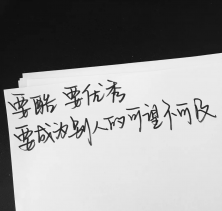 要酷 要优秀
要成为别人的可望不可及